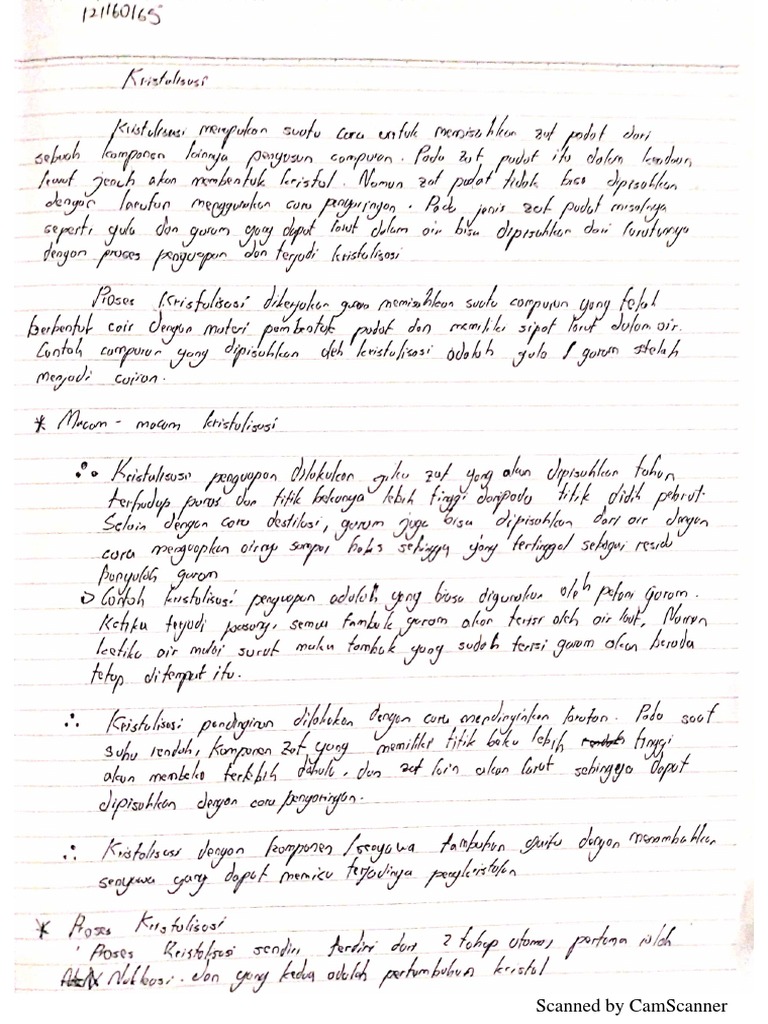 121160165
Kristalisasi
Kristalisasi merupakan suatu cara untuk memisahkan zat padat dari
sebuah komponen lainnya penyusun campuran. Pada zat padat itu dalam keadaan
lewat jenuh akan membentuk kristal. Namun zat padat tidak bisa dipisahkan
dengan larutan menggunakan cara penyaringan. Pada jenis zat padat misalnya
seperti gula dan garam yang dapat larut dalam air bisa dipisahkan dari larutannya
dengan proses penguapan dan terjadi kristalisasi
Proses Kristalisasi dikerjakan guna memisahkan suatu campuran yang telah
berbentuk cair dengan materi pembentuk padat dan memiliki sipat larut dalam air.
Contoh campuran yang dipisahkan oleh kristalisasi adalah gula / garam setelah
menjadi cairan.
* Macam - macam kristalisasi
∴ Kristalisasi penguapan dilakukan jika zat yang akan dipisahkan tahan
terhadap panas dan titik bekunya lebih tinggi daripada titik didih pelarut.
Selain dengan cara destilasi, garam juga bisa dipisahkan dari air dengan
cara menguapkan airnya sampai habis sehingga yang tertinggal sebagai residu
hanyalah garam
Contoh kristalisasi penguapan adalah yang biasa digunakan oleh petani garam.
Ketika terjadi pasang, semua tambak garam akan terisi oleh air laut, Namun
ketika air mulai surut maka tambak yang sudah terisi garam akan berada
tetap ditempat itu.
∴ Kristalisasi pendinginan dilakukan dengan cara mendinginkan larutan. Pada saat
suhu rendah, komponen zat yang memiliki titik baku lebih tinggi
akan membeku terlebih dahulu, dan zat lain akan larut sehingga dapat
dipisahkan dengan cara penyaringan.
∴ Kristalisasi dengan komponen / senyawa tambahan yaitu dengan menambahkan
senyawa yang dapat memicu terjadinya pengkristalan
* Proses Kristalisasi
Proses Kristalisasi sendiri terdiri dari 2 tahap utama, pertama ialah
Nukleasi. dan yang kedua adalah pertumbuhan kristal
Scanned by CamScanner